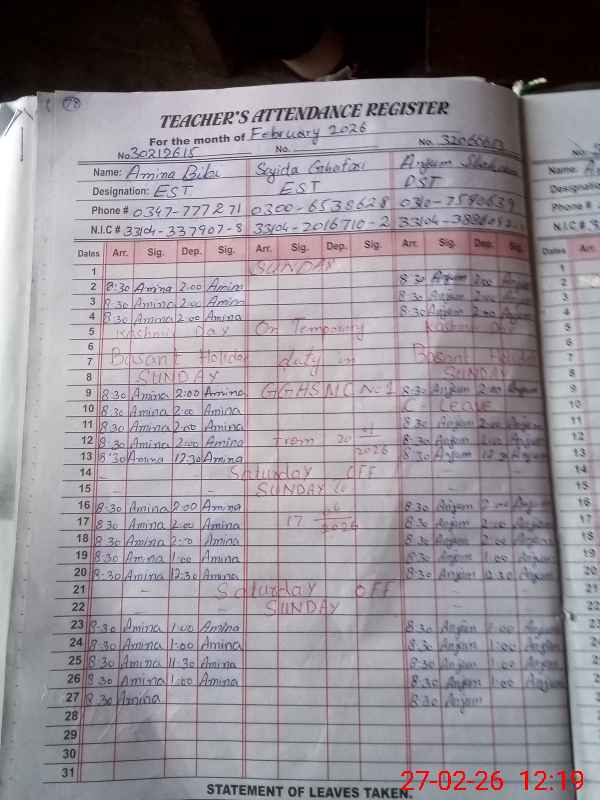 78
TEACHER'S ATTENDANCE REGISTER
For the month of February 2026
No. 30212615 No. No.
Name: Amina Bibi Sajida Anjum
Designation: EST EST DST
Phone # 0347-777271 0300-6538628 0310-7590639
N.I.C # 33104-337907-8 33104-2016710-2 33104-
Dates Arr. Sig. Dep. Sig. Arr. Sig. Dep. Sig. Arr. Sig. Dep. Sig.
1 SUNDAY
2 8:30 Amina 2:00 Amina 8:30 Anjum 2:00 Anjum
3 8:30 Amina 2:00 Amina 8:30 Anjum 2:00 Anjum
4 8:30 Amina 2:00 Amina 8:30 Anjum 2:00 Anjum
5 Kashmir Day On Temporary Kashmir Day
6
7 Basant Holiday duty in Basant Holiday
8 SUNDAY SUNDAY
9 8:30 Amina 2:00 Amina GGHS MC No 1 8:30 Anjum 2:00 Anjum
10 8:30 Amina 2:00 Amina C. Leave
11 8:30 Amina 2:00 Amina 8:30 Anjum 2:00 Anjum
12 8:30 Amina 2:00 Amina From 20 2026 8:30 Anjum 2:00 Anjum
13 8:30 Amina 12:30 Amina 8:30 Anjum 12:30 Anjum
14 - - Saturday OFF - -
15 - - SUNDAY to - -
16 8:30 Amina 2:00 Amina 8:30 Anjum 2:00 Anjum
17 8:30 Amina 2:00 Amina 17 2026 8:30 Anjum 2:00 Anjum
18 8:30 Amina 2:00 Amina 8:30 Anjum 2:00 Anjum
19 8:30 Amina 1:00 Amina 8:30 Anjum 1:00 Anjum
20 8:30 Amina 12:30 Amina 8:30 Anjum 12:30 Anjum
21 - Saturday OFF
22 - - SUNDAY - -
23 8:30 Amina 1:00 Amina 8:30 Anjum 1:00 Anjum
24 8:30 Amina 1:00 Amina 8:30 Anjum 1:00 Anjum
25 8:30 Amina 11:30 Amina 8:30 Anjum 1:00 Anjum
26 8:30 Amina 1:00 Amina 8:30 Anjum 1:00 Anjum
27 8:30 Amina 8:30 Anjum
28
29
30
31
STATEMENT OF LEAVES TAKEN.
27-02-26 12:19